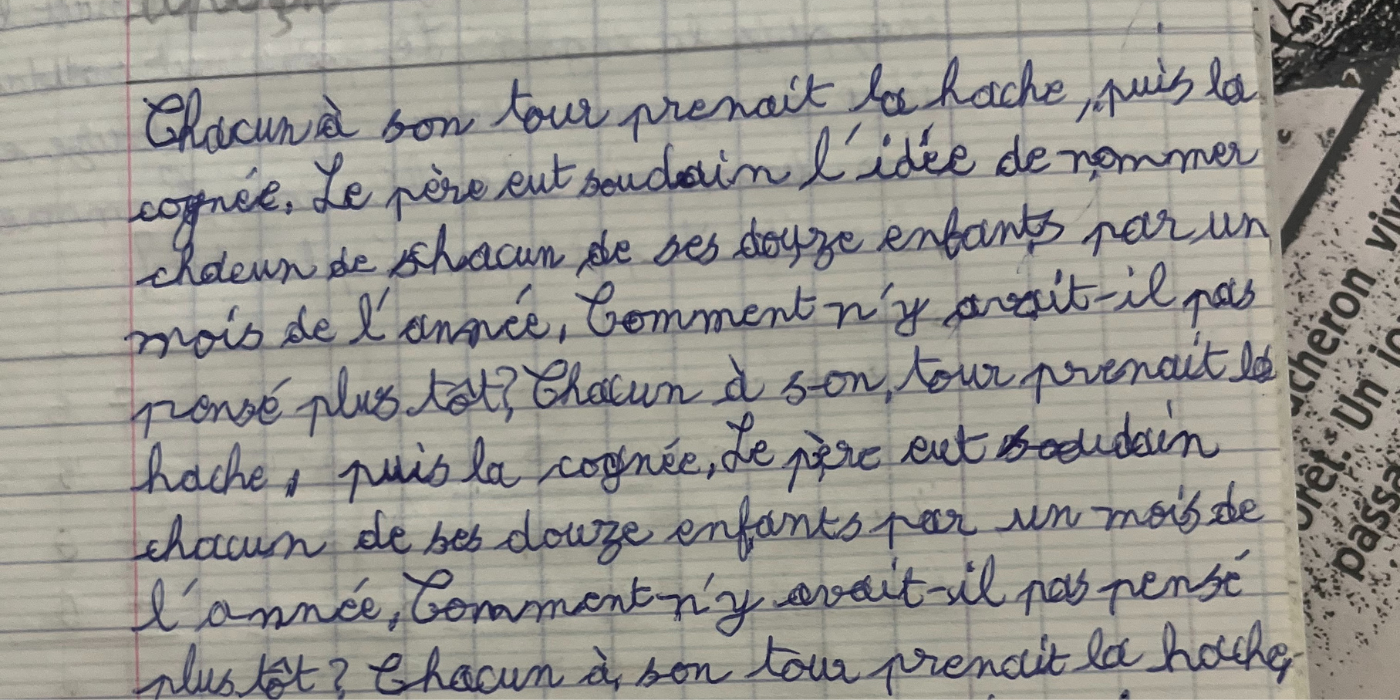 Chacun à son tour prenait la hache, puis la
cognée. Le père eut soudain l'idée de nommer
chacun de chacun de ses douze enfants par un
mois de l'année, Comment n'y avait-il pas
pensé plus tôt? Chacun à son tour prenait la
hache, puis la cognée, Le père eut soudain
chacun de ses douze enfants par un mois de
l'année, Comment n'y avait-il pas pensé
plus tôt? Chacun à son tour prenait la hache,
cheron viv
orêt. Un jo
passa